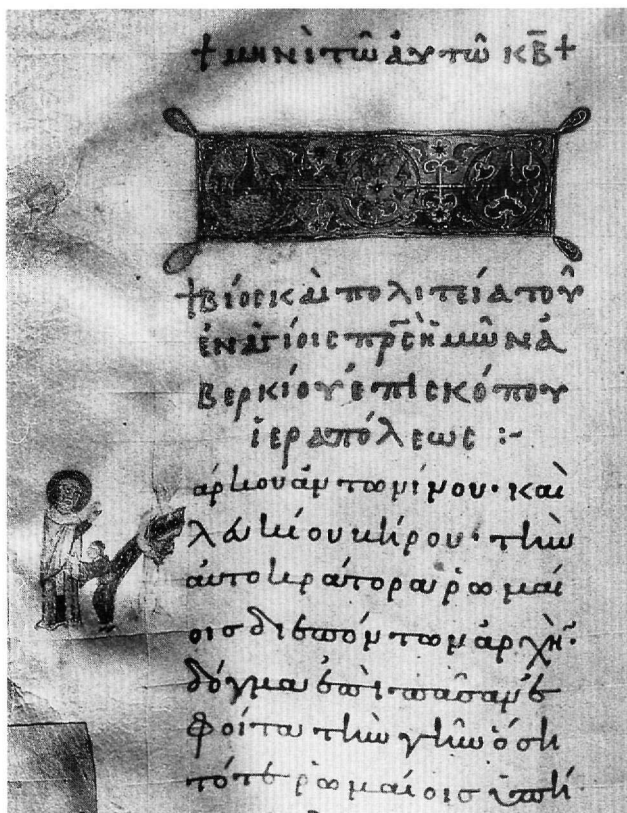 + μηνὶ τῶ ἀυτῶ κβ̅ +
+ βίος καὶ πολιτεία τοῦ
ἐν ἁγίοις πρ̅ς ἡμῶν ἀ
βερκίου ἐπισκόπου
ἱεραπόλεως :-
άρκου ἀντωνίνου · καὶ
λευκίου κήρου · τὴν
ἀυτοκράτορα ῥωμαί
οις διεπόντων ἀρχὴν ·
δόγμα ἐπὶ πᾶσαν ἐ
φοίτα τὴν γῆν ὅση
τότε ῥωμαίοις ὑπή